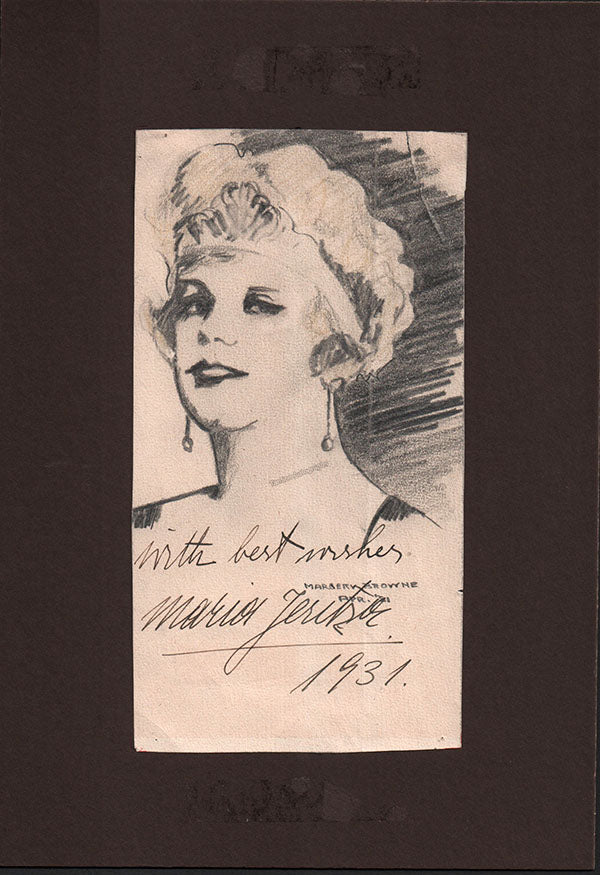 with best wishes
MARGERY BROWNE
APR. '31
Maria Jeritza
1931.